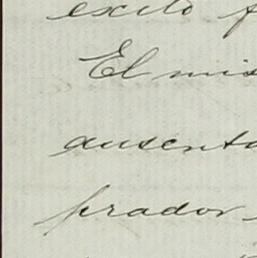 exito f
El mis
ausenta
prador